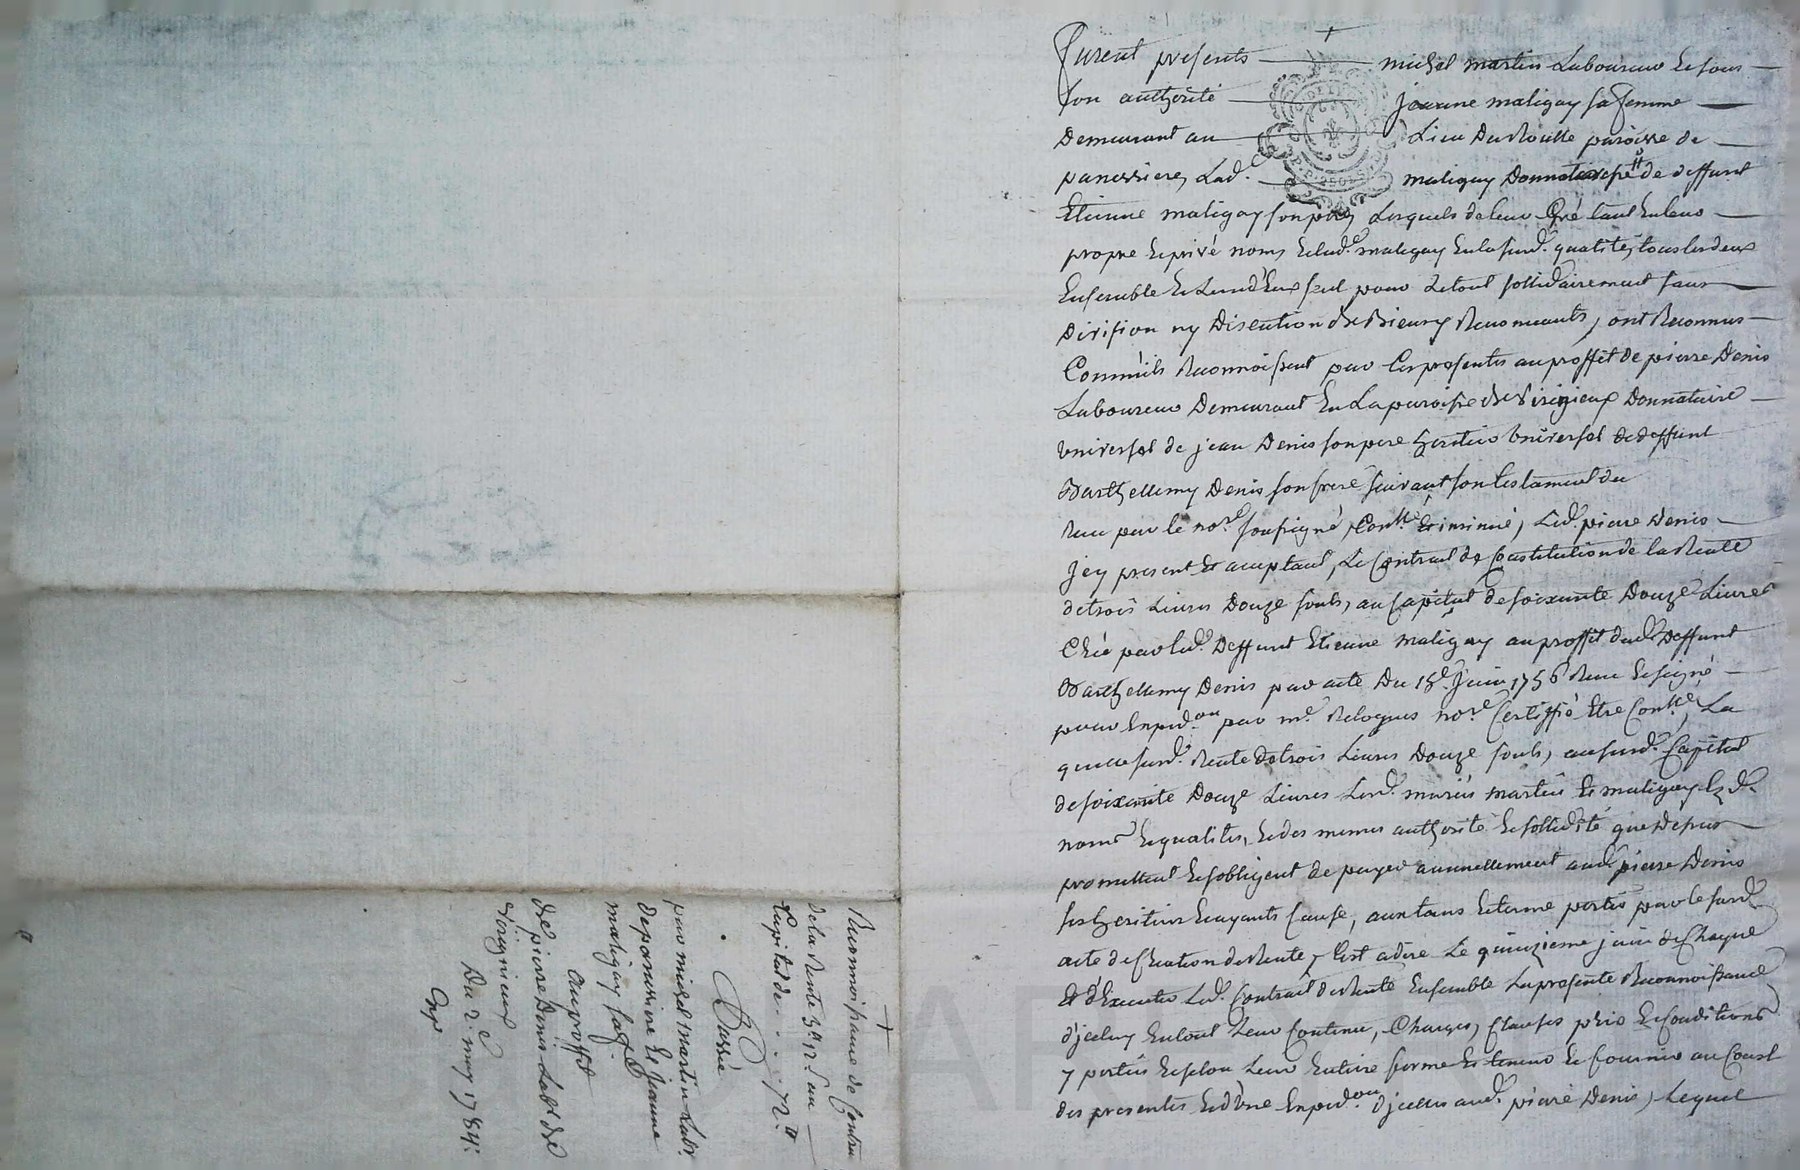 furent presents michel martin Laboureur Et sous
son authorité jeanne maligay sa femme
Demeurant au Lieu paroisse de
panissiere, Lad.e maligay de deffunt
Etienne maligay son pere, Lesquels de leur Gré tant En leur
propre Et privé noms, Et lad.e maligay En lasusd. qualité, tous les deux
Ensemble Et L'un d'Eux seul pour Le tout sollidairement sans
Division ny Discution de Biens y Renonceants, ont Reconnus
Comm'ils Reconnoissent par Ces presentes au proffit de pierre Denis
Laboureur Demeurant En La paroisse de virignieux Donnataire
Universel de jean Denis son pere heritier Universel de deffunt
Barthellemy Denis son frere suivant son testament du
Recu par le no.re soussigné, Con.llé Et insinué, Led. pierre Denis
jcy present Et acceptant, Le Contrat de Constitution de la Rente
de trois Livres Douze souls, au Capital de soixante Douze Livres
Créé par led. Deffunt Etienne maligay au proffit dud. Deffunt
Barthellemy Denis par acte Du 15.e juin 1756 Recu Et signé
pour Expéd.on par m.e no.re Certiffié Etre Con.llé, La
quelle susd. Rente de trois Livres Douze souls, au susd. Capital
de soixante Douze Livres Lesd. mariés martin Et maligay Esd.
noms Et qualités, Et des memes authorité Et sollidité que Dessus
promettent Et s'obligent de payer annuellement aud. pierre Denis
ses heritiers Et ayants Cause, aux tems Et terme portés par le susd.
acte de Création de Rente, C'est adire Le quinzieme juin de Chaque
Et d'Executer Led. Contrat de Rente Ensemble La presente Reconnoissance
d'jceluy En tout Leur Contenu, Charges, Clauses, prix Et Conditions
y portés Et selon Leur Entiere forme Et teneur Et fournir au Coust
des presentes Et d'une Expéd.on d'jcelles aud. pierre Denis, Lequel
Reconnoissance de Contrat
de la Rente 3# 12. s au
Capital de . . . . 72.#
Passée
par michel martin Lab.r
de panissiere Et Jeanne
maligay sa f.e
Au proffit
de pierre Denis Lab.r de
virignieux
Du 2.e may 1784: